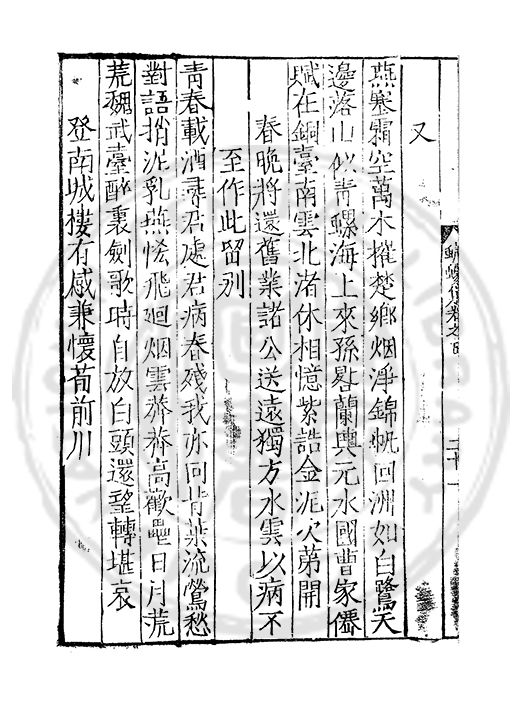 又
燕塞霜空萬木摧楚鄉烟淨錦帆回洲如白鷺天
邊落山似青螺海上來孫畧蘭典元水國曹家僊
賦在銅臺南雲北渚休相憶紫誥金泥次第開
春晚將還舊業諸公送遠獨方水雲以病不
至作此留別
青春載酒尋君處君病春殘我亦回背葉流鶯愁
對語捎泥乳燕恠飛廻烟雲莽莽高歡壘日月荒
荒魏武臺醉裏劍歌時自放白頭還望轉堪哀
登南城樓有感兼懷荀前川
蠛蠓集卷之
二十一